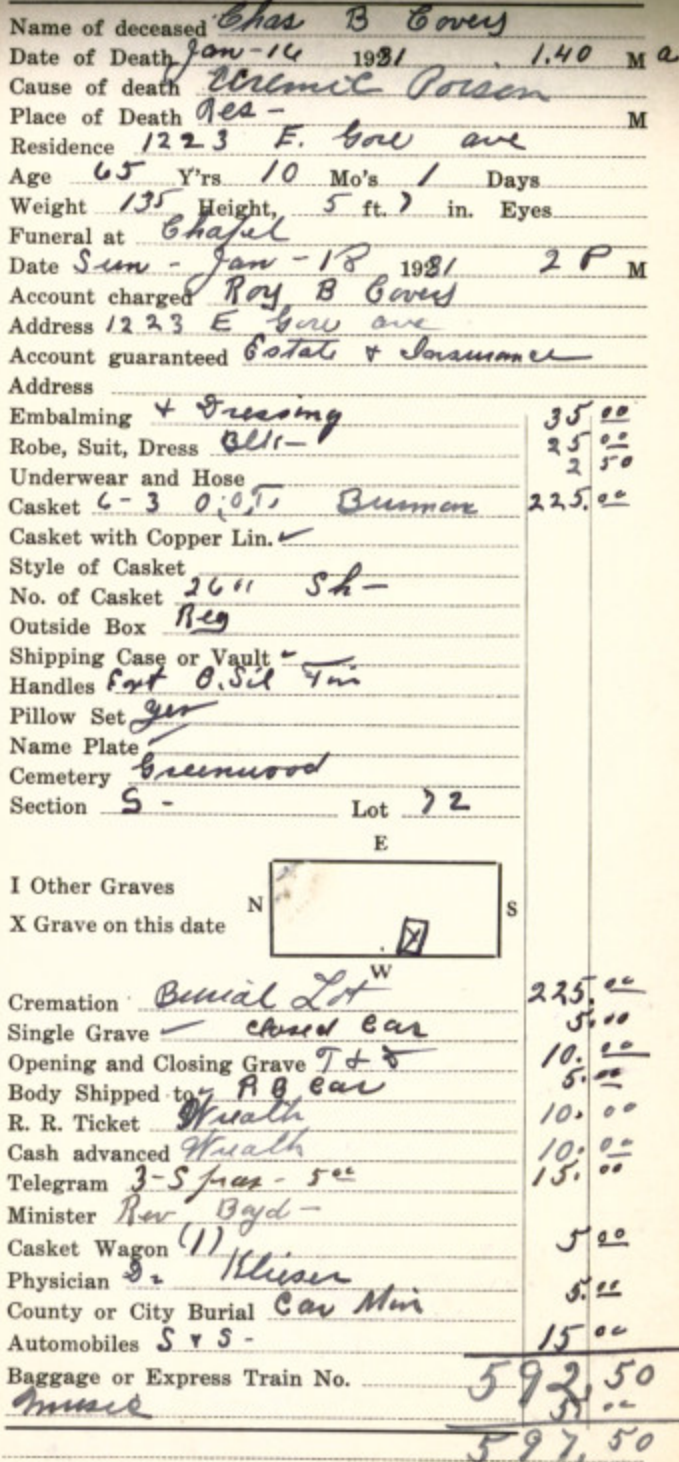 Name of deceased Chas B Covery
Date of Death Jan-16 1931 1.40 M a
Cause of death Uremic Poison
Place of Death Res - M
Residence 1223 E. Gore ave
Age 65 Y'rs 10 Mo's 1 Days
Weight 135 Height, 5 ft. 7 in. Eyes
Funeral at Chapel
Date Sun - Jan - 18 1931 2 P M
Account charged Roy B Covery
Address 1223 E Gore ave
Account guaranteed Estate & Insurance
Address
Embalming & Dressing 35 00
Robe, Suit, Dress Blk- 25 00
Underwear and Hose 2 50
Casket 6-3 225.00
Casket with Copper Lin. ✓
Style of Casket
No. of Casket 2611 Sh-
Outside Box Reg
Shipping Case or Vault
Handles
Pillow Set yes
Name Plate ✓
Cemetery Greenwood
Section S - Lot 72
E
I Other Graves
N S
X Grave on this date X
W
Cremation Burial Lot 225.00
Single Grave ✓ closed Car 5.00
Opening and Closing Grave T & 10.00
Body Shipped to P B Car 5.00
R. R. Ticket Wreath 10.00
Cash advanced Wreath 10.00
Telegram 3-Spras - 5 00 15.00
Minister Rev Boyd -
Casket Wagon (1) 5 00
Physician Dr Klieser
County or City Burial Car Min 5.00
Automobiles S & S - 15 00
Baggage or Express Train No. 592.50
music 5.00
597.50